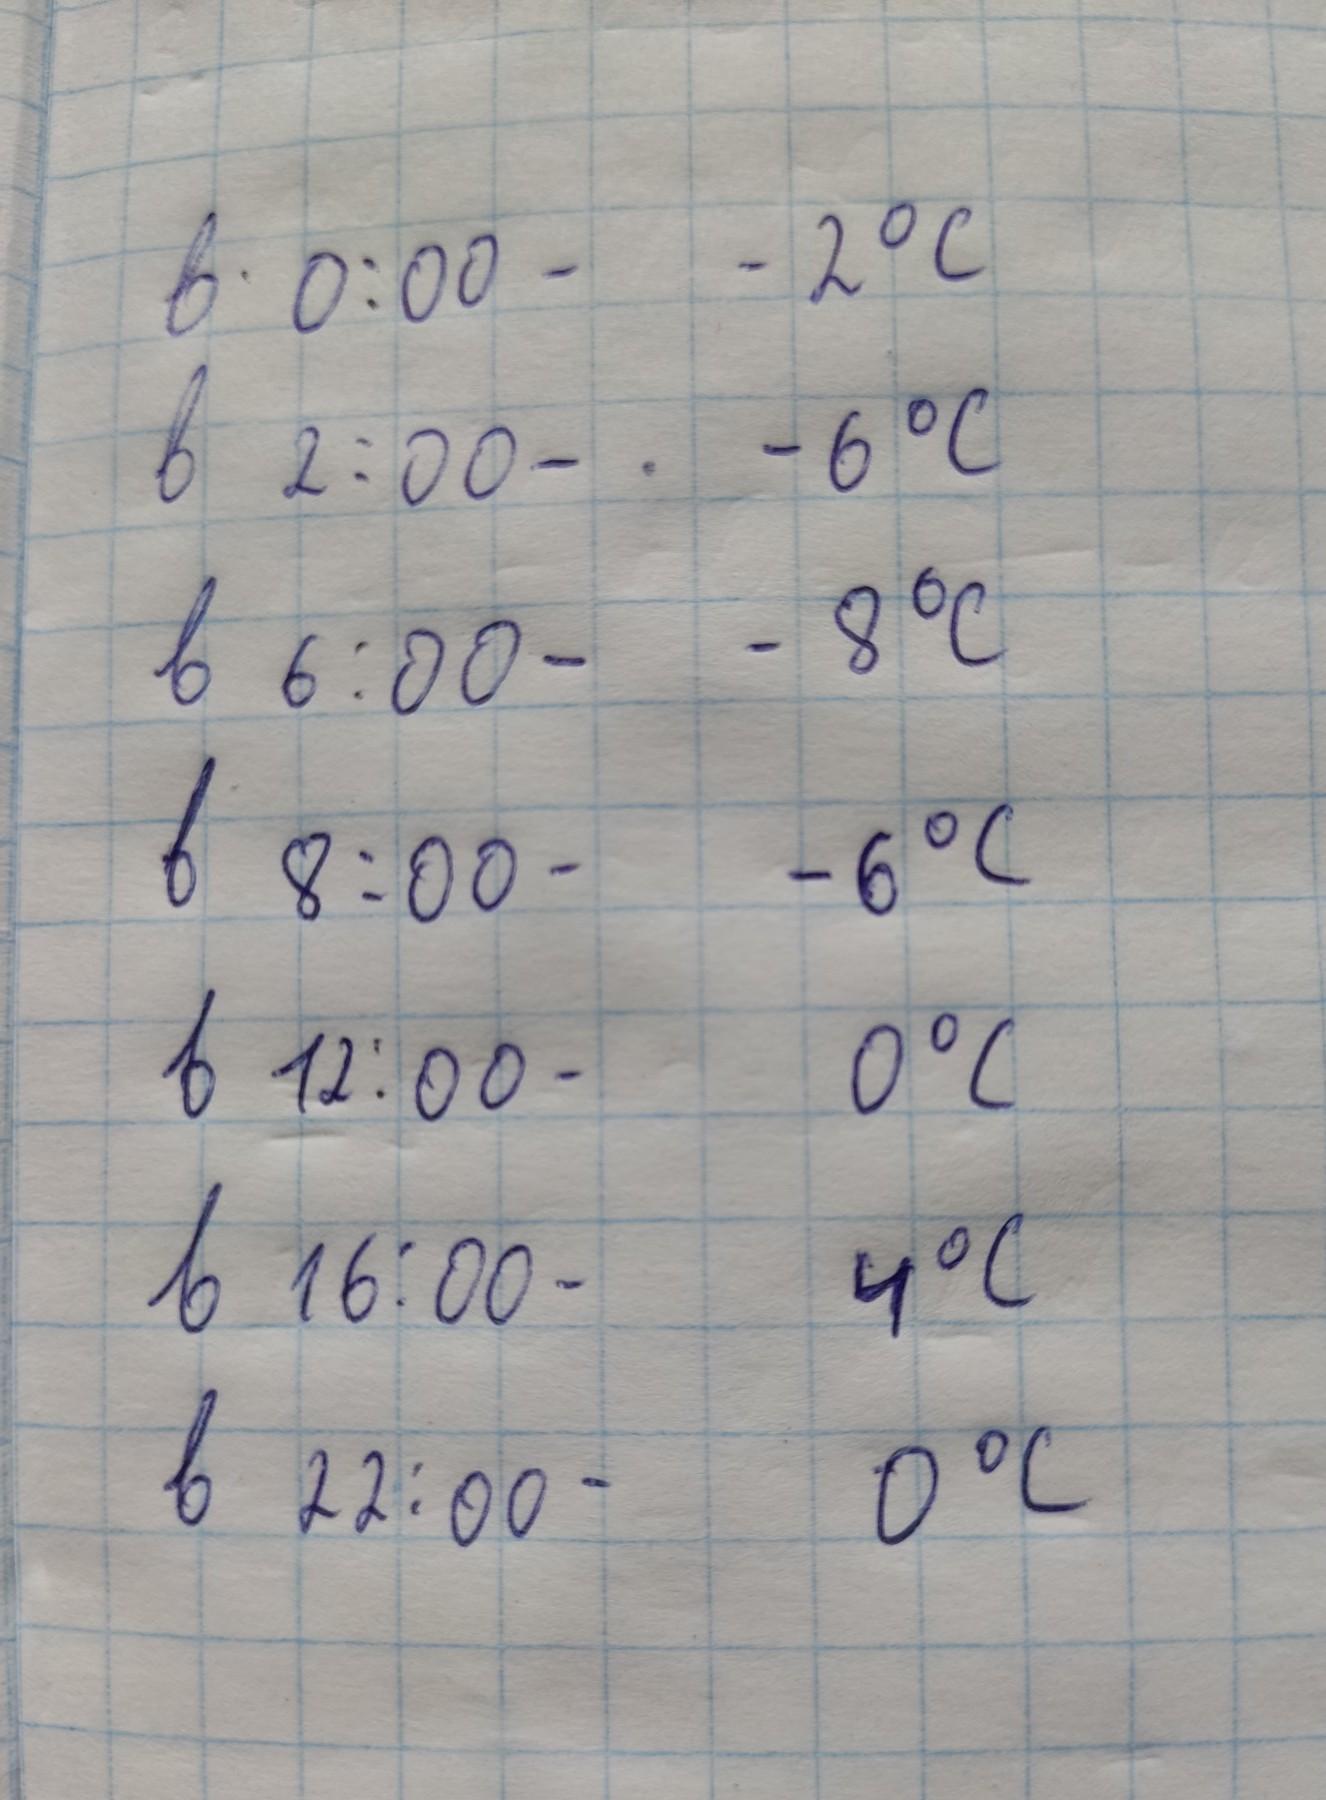 в 0:00 - -2°C
в 2:00 - -6°C
в 6:00 - -8°C
в 8:00 - -6°C
в 12:00 - 0°C
в 16:00 - 4°C
в 22:00 - 0°C